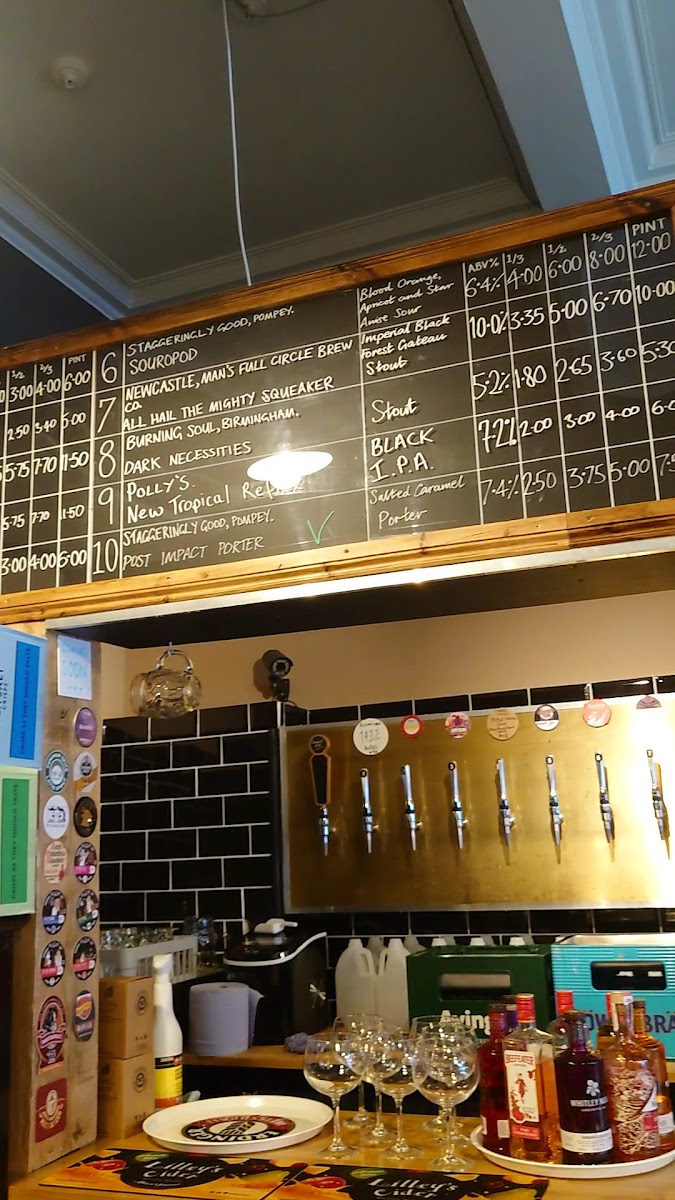 1/2 2/3 PINT
3·00 4·00 6·00
2·50 3·40 5·00
5·75 7·70 11·50
5·75 7·70 11·50
3·00 4·00 6·00
6 STAGGERINGLY GOOD, POMPEY.
SOUROPOD
7 NEWCASTLE, MAN'S FULL CIRCLE BREW
CO.
ALL HAIL THE MIGHTY SQUEAKER
8 BURNING SOUL, BIRMINGHAM.
DARK NECESSITIES
9 POLLY'S.
New Tropical
10 STAGGERINGLY GOOD, POMPEY.
POST IMPACT PORTER
Blood Orange,
Apricot and Star
Anise Sour
Imperial Black
Forest Gateau
Stout
Stout
BLACK
I.P.A.
Salted Caramel
Porter
ABV% 1/3 1/2 2/3 PINT
6·4% 4·00 6·00 8·00 12·00
10·0% 3·35 5·00 6·70 10·00
5·2% 1·80 2·65 3·60 5·30
7·2% 2·00 3·00 4·00
7·4% 2·50 3·75 5·00
COMING
SOON
...
1422
BEEFEATER
WHITLEY
ERDINGER
Lilley's
Cider
Lilley's
Cider